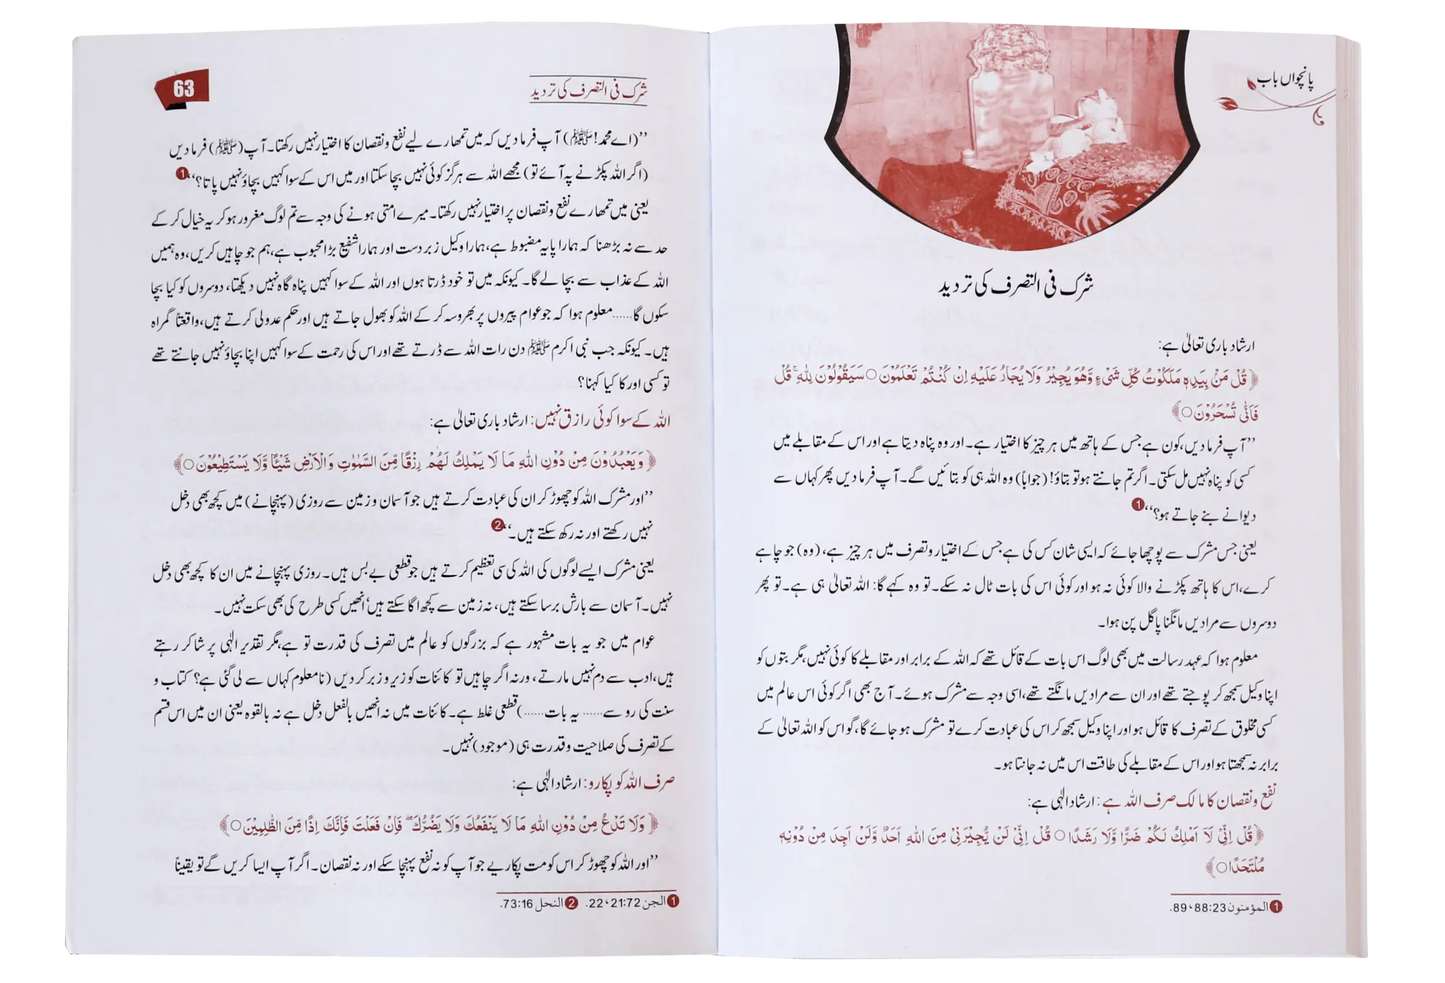 پانچواں باب
شرک فی التصرف کی تردید
ارشاد باری تعالیٰ ہے:
﴿قُلْ مَنْۢ بِيَدِهٖ مَلَكُوْتُ كُلِّ شَيْءٍ وَّهُوَ يُجِيْرُ وَلَا يُجَارُ عَلَيْهِ اِنْ كُنْتُمْ تَعْلَمُوْنَ○ سَيَقُوْلُوْنَ لِلّٰهِ ۚ قُلْ
فَاَنّٰى تُسْحَرُوْنَ○﴾
’’آپ فرما دیں، کون ہے جس کے ہاتھ میں ہر چیز کا اختیار ہے۔ اور وہ پناہ دیتا ہے اور اس کے مقابلے میں
کسی کو پناہ نہیں مل سکتی۔ اگر تم جانتے ہو تو بتاؤ! (جواباً) وہ اللہ ہی کو بتائیں گے۔ آپ فرما دیں پھر کہاں سے
دیوانے بنے جاتے ہو؟‘‘ 1
یعنی جس مشرک سے پوچھا جائے کہ ایسی شان کس کی ہے جس کے اختیار و تصرف میں ہر چیز ہے، (وہ) جو چاہے
کرے، اس کا ہاتھ پکڑنے والا کوئی نہ ہو اور کوئی اس کی بات ٹال نہ سکے۔ تو وہ کہے گا: اللہ تعالیٰ ہی ہے۔ تو پھر
دوسروں سے مرادیں مانگنا پاگل پن ہوا۔
معلوم ہوا کہ عہد رسالت میں بھی لوگ اس بات کے قائل تھے کہ اللہ کے برابر اور مقابلے کا کوئی نہیں، مگر بتوں کو
اپنا وکیل سمجھ کر پوجتے تھے اور ان سے مرادیں مانگتے تھے، اسی وجہ سے مشرک ہوئے۔ آج بھی اگر کوئی اس عالم میں
کسی مخلوق کے تصرف کا قائل ہو اور اپنا وکیل سمجھ کر اس کی عبادت کرے تو مشرک ہو جائے گا، گو اس کو اللہ تعالیٰ کے
برابر نہ سمجھتا ہو اور اس کے مقابلے کی طاقت اس میں نہ جانتا ہو۔
نفع و نقصان کا مالک صرف اللہ ہے: ارشاد الٰہی ہے:
﴿قُلْ اِنِّيْ لَآ اَمْلِكُ لَكُمْ ضَرًّا وَّلَا رَشَدًا○ قُلْ اِنِّيْ لَنْ يُّجِيْرَنِيْ مِنَ اللّٰهِ اَحَدٌ وَّلَنْ اَجِدَ مِنْ دُوْنِهٖ
مُلْتَحَدًا○﴾
1 المؤمنون 88:23، 89.
شرک فی التصرف کی تردید
63
’’(اے محمد! ﷺ) آپ فرما دیں کہ میں تمھارے لیے نفع و نقصان کا اختیار نہیں رکھتا۔ آپ (ﷺ) فرما دیں
(اگر اللہ پکڑنے پہ آئے تو) مجھے اللہ سے ہرگز کوئی نہیں بچا سکتا اور میں اس کے سوا کہیں بچاؤ نہیں پاتا؟‘‘ 1
یعنی میں تمھارے نفع و نقصان پر اختیار نہیں رکھتا۔ میرے امتی ہونے کی وجہ سے تم لوگ مغرور ہو کر یہ خیال کر کے
حد سے نہ بڑھنا کہ ہمارا پایہ مضبوط ہے، ہمارا وکیل زبردست اور ہمارا شفیع بڑا محبوب ہے، ہم جو چاہیں کریں، وہ ہمیں
اللہ کے عذاب سے بچا لے گا۔ کیونکہ میں تو خود ڈرتا ہوں اور اللہ کے سوا کہیں پناہ گاہ نہیں دیکھتا، دوسروں کو کیا بچا
سکوں گا...... معلوم ہوا کہ جو عوام پیروں پر بھروسہ کر کے اللہ کو بھول جاتے ہیں اور حکم عدولی کرتے ہیں، واقعتاً گمراہ
ہیں۔ کیونکہ جب نبی اکرم ﷺ دن رات اللہ سے ڈرتے تھے اور اس کی رحمت کے سوا کہیں اپنا بچاؤ نہیں جانتے تھے
تو کسی اور کا کیا کہنا؟
اللہ کے سوا کوئی رازق نہیں: ارشاد باری تعالیٰ ہے:
﴿وَيَعْبُدُوْنَ مِنْ دُوْنِ اللّٰهِ مَا لَا يَمْلِكُ لَهُمْ رِزْقًا مِّنَ السَّمٰوٰتِ وَالْاَرْضِ شَيْئًا وَّلَا يَسْتَطِيْعُوْنَ○﴾
’’اور مشرک اللہ کو چھوڑ کر ان کی عبادت کرتے ہیں جو آسمان و زمین سے روزی (پہنچانے) میں کچھ بھی دخل
نہیں رکھتے اور نہ رکھ سکتے ہیں۔‘‘ 2
یعنی مشرک ایسے لوگوں کی اللہ کی سی تعظیم کرتے ہیں جو قطعی بے بس ہیں۔ روزی پہنچانے میں ان کا کچھ بھی دخل
نہیں۔ آسمان سے بارش برسا سکتے ہیں، نہ زمین سے کچھ اگا سکتے ہیں‘ انھیں کسی طرح کی بھی سکت نہیں۔
عوام میں جو یہ بات مشہور ہے کہ بزرگوں کو عالم میں تصرف کی قدرت تو ہے، مگر تقدیر الٰہی پر شاکر رہتے
ہیں، ادب سے دم نہیں مارتے، ورنہ اگر چاہیں تو کائنات کو زیر و زبر کر دیں (نا معلوم کہاں سے لی گئی ہے؟ کتاب و
سنت کی رو سے...... یہ بات......) قطعی غلط ہے۔ کائنات میں نہ انھیں بالفعل دخل ہے نہ بالقوہ یعنی ان میں اس قسم
کے تصرف کی صلاحیت و قدرت ہی (موجود) نہیں۔
صرف اللہ کو پکارو: ارشاد الٰہی ہے:
﴿وَلَا تَدْعُ مِنْ دُوْنِ اللّٰهِ مَا لَا يَنْفَعُكَ وَلَا يَضُرُّكَ ۚ فَاِنْ فَعَلْتَ فَاِنَّكَ اِذًا مِّنَ الظّٰلِمِيْنَ○﴾
’’اور اللہ کو چھوڑ کر اس کو مت پکاریے جو آپ کو نہ نفع پہنچا سکے اور نہ نقصان۔ اگر آپ ایسا کریں گے تو یقیناً
1 الجن 21:72، 22. 2 النحل 73:16.